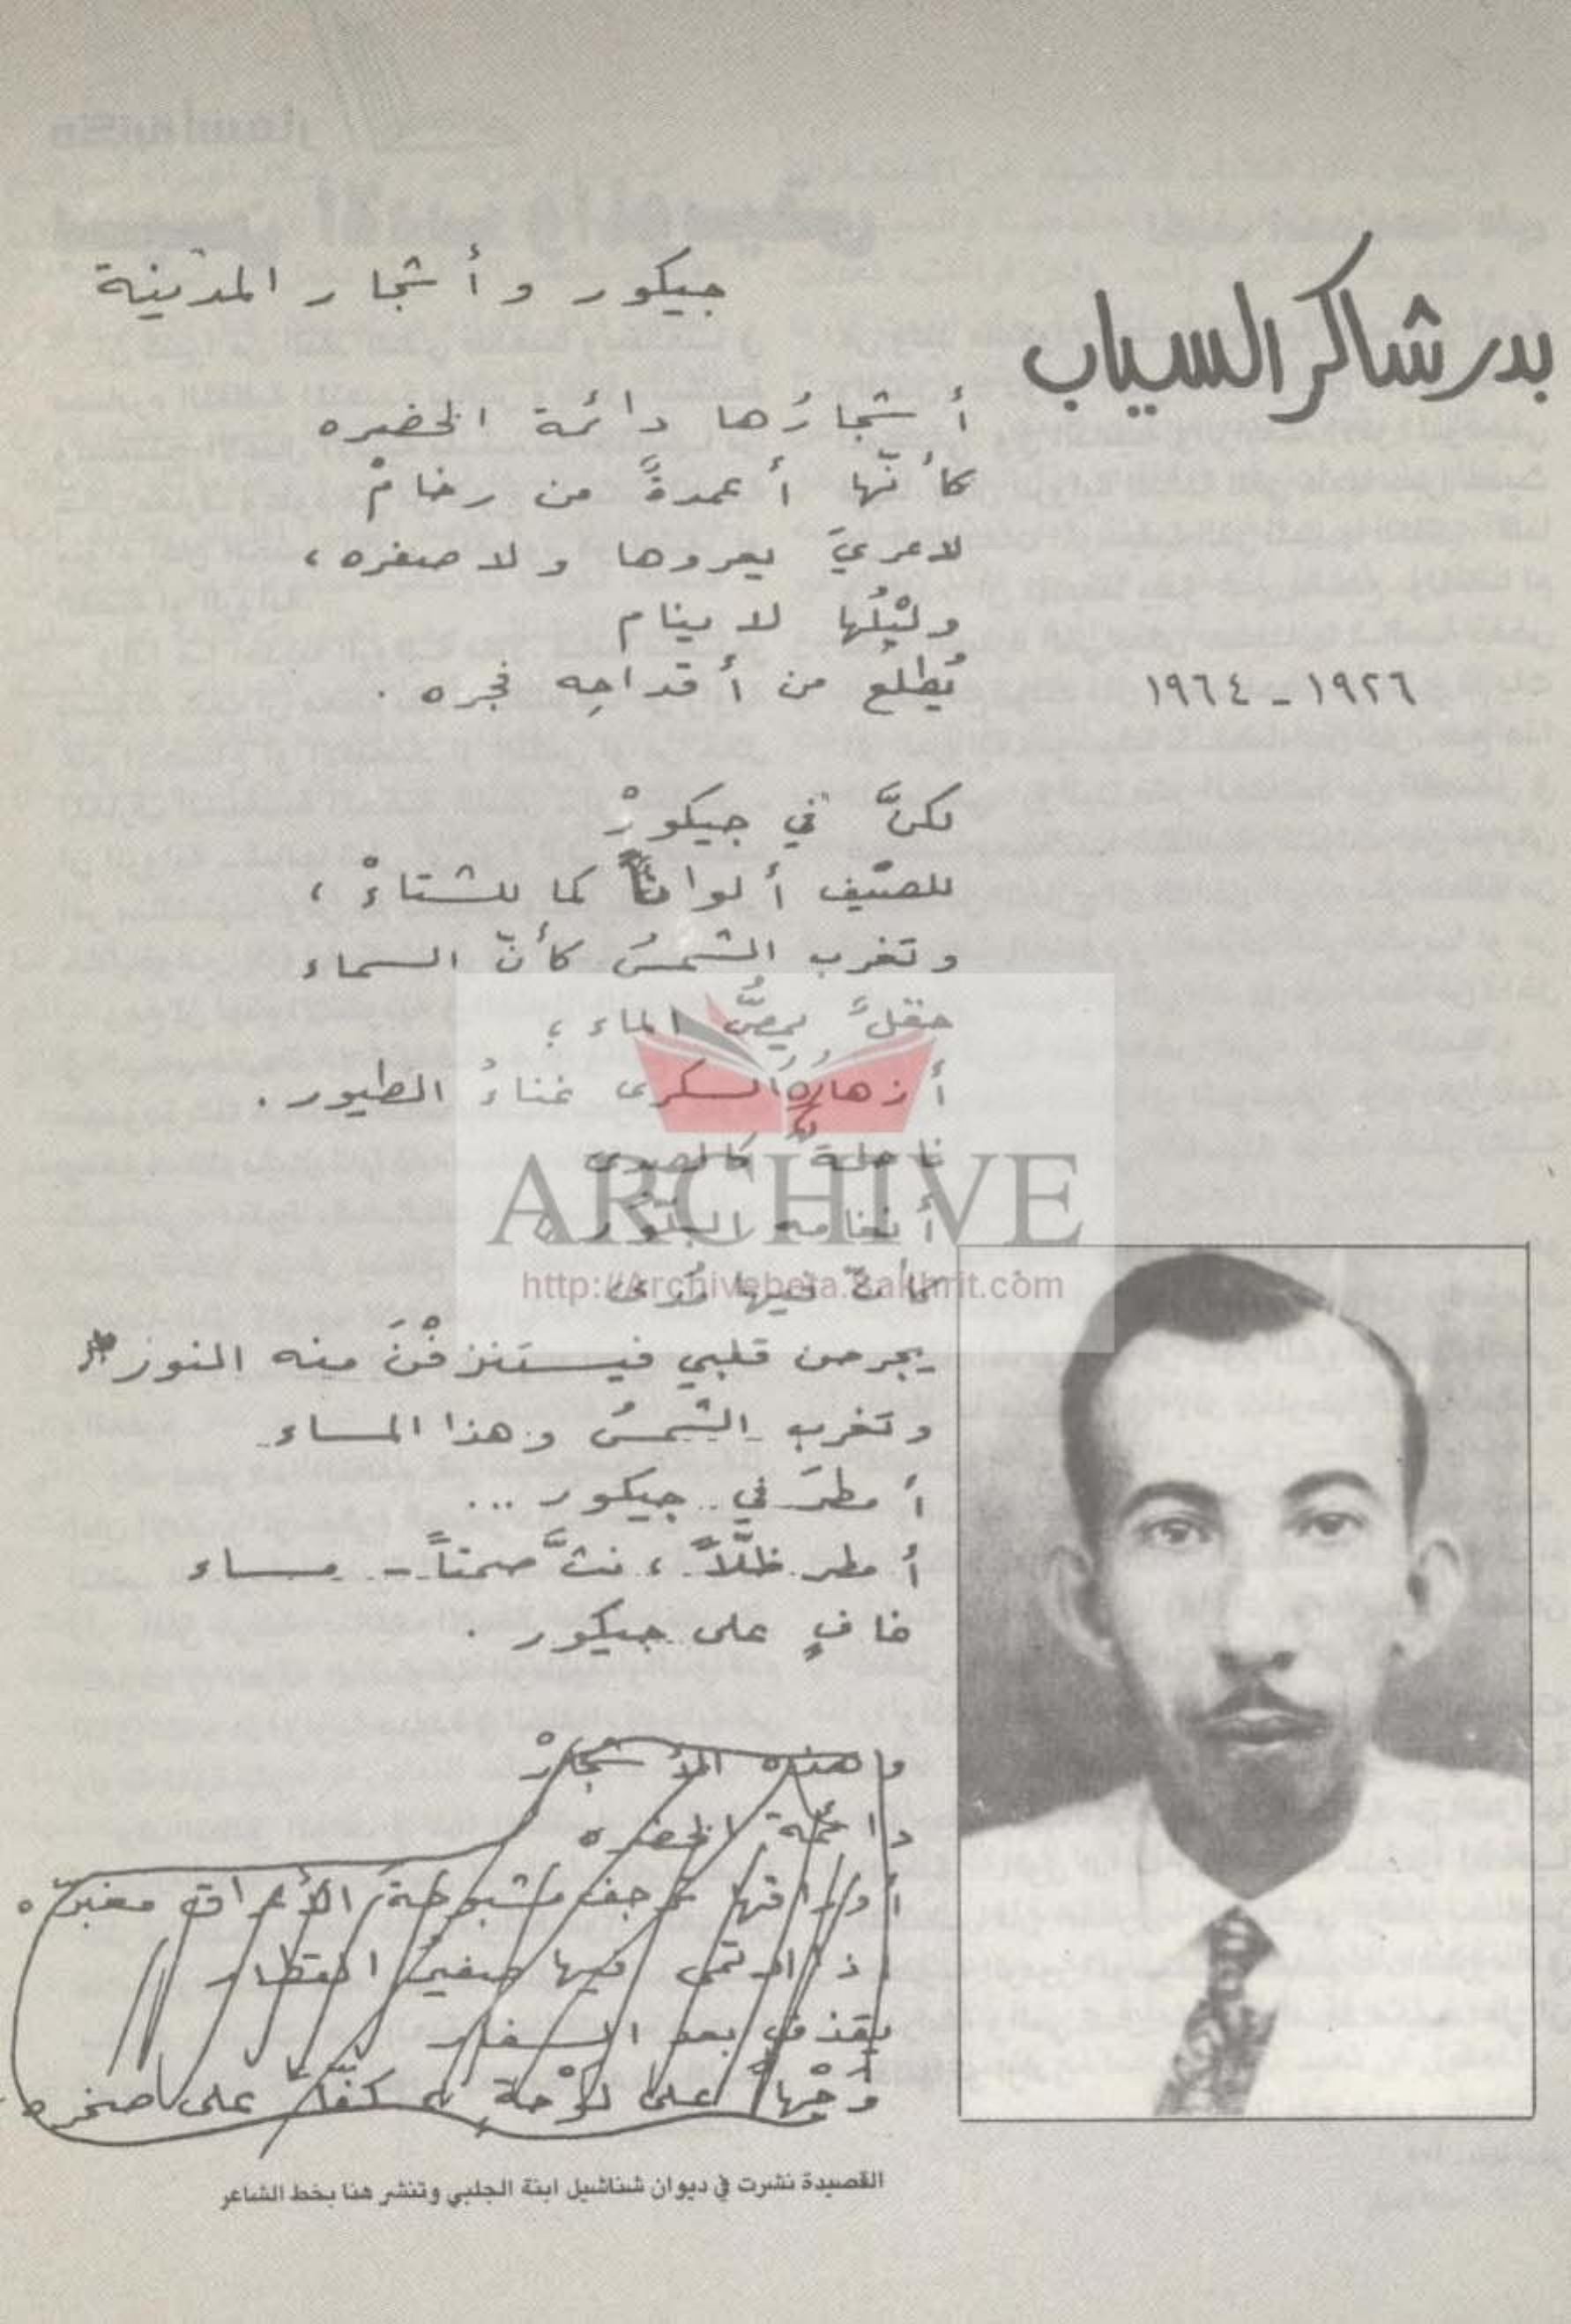 بدر شاكر السياب
١٩٢٦ - ١٩٦٤
جيكور وأشجار المدينة
أشجارُها دائمة الخضره
كأنّها أعمدةٌ من رخامْ
لا عريَ يعروها ولا صفره،
وليْلُها لا ينام
يُطلعُ من أقداحِه فجره.
لكنَّ في جيكورْ
للصيف ألواناً كما للشتاءْ،
وتغرب الشمسُ كأنّ السماء
حقلٌ يمصُّ الماء؛
أزهارُه السكرى غناءُ الطيور.
ناحلةٌ كالصدى
أنغامه البلّور
كأنّ فيها مُدى
يجرحن قلبي فيستنزفْنَ منه النور
وتغرب الشمسُ وهذا المساء
أمطرَ في جيكور ...
أمطر ظلّاً، نثَّ صمتاً - مساء
غافٍ على جيكور.
وهذه الأشجارْ
دائمة الخضره
أوراقها مشبوحة الأعراق مغبرّه
فيها صفيرُ القطار
يقذف بعد السفار
وجْهاً على لوْحةٍ كفّاً على صخره
القصيدة نشرت في ديوان شناشيل ابنة الجلبي وتنشر هنا بخط الشاعر
ARCHIVE
http://Archivebeta.Sakhrit.com